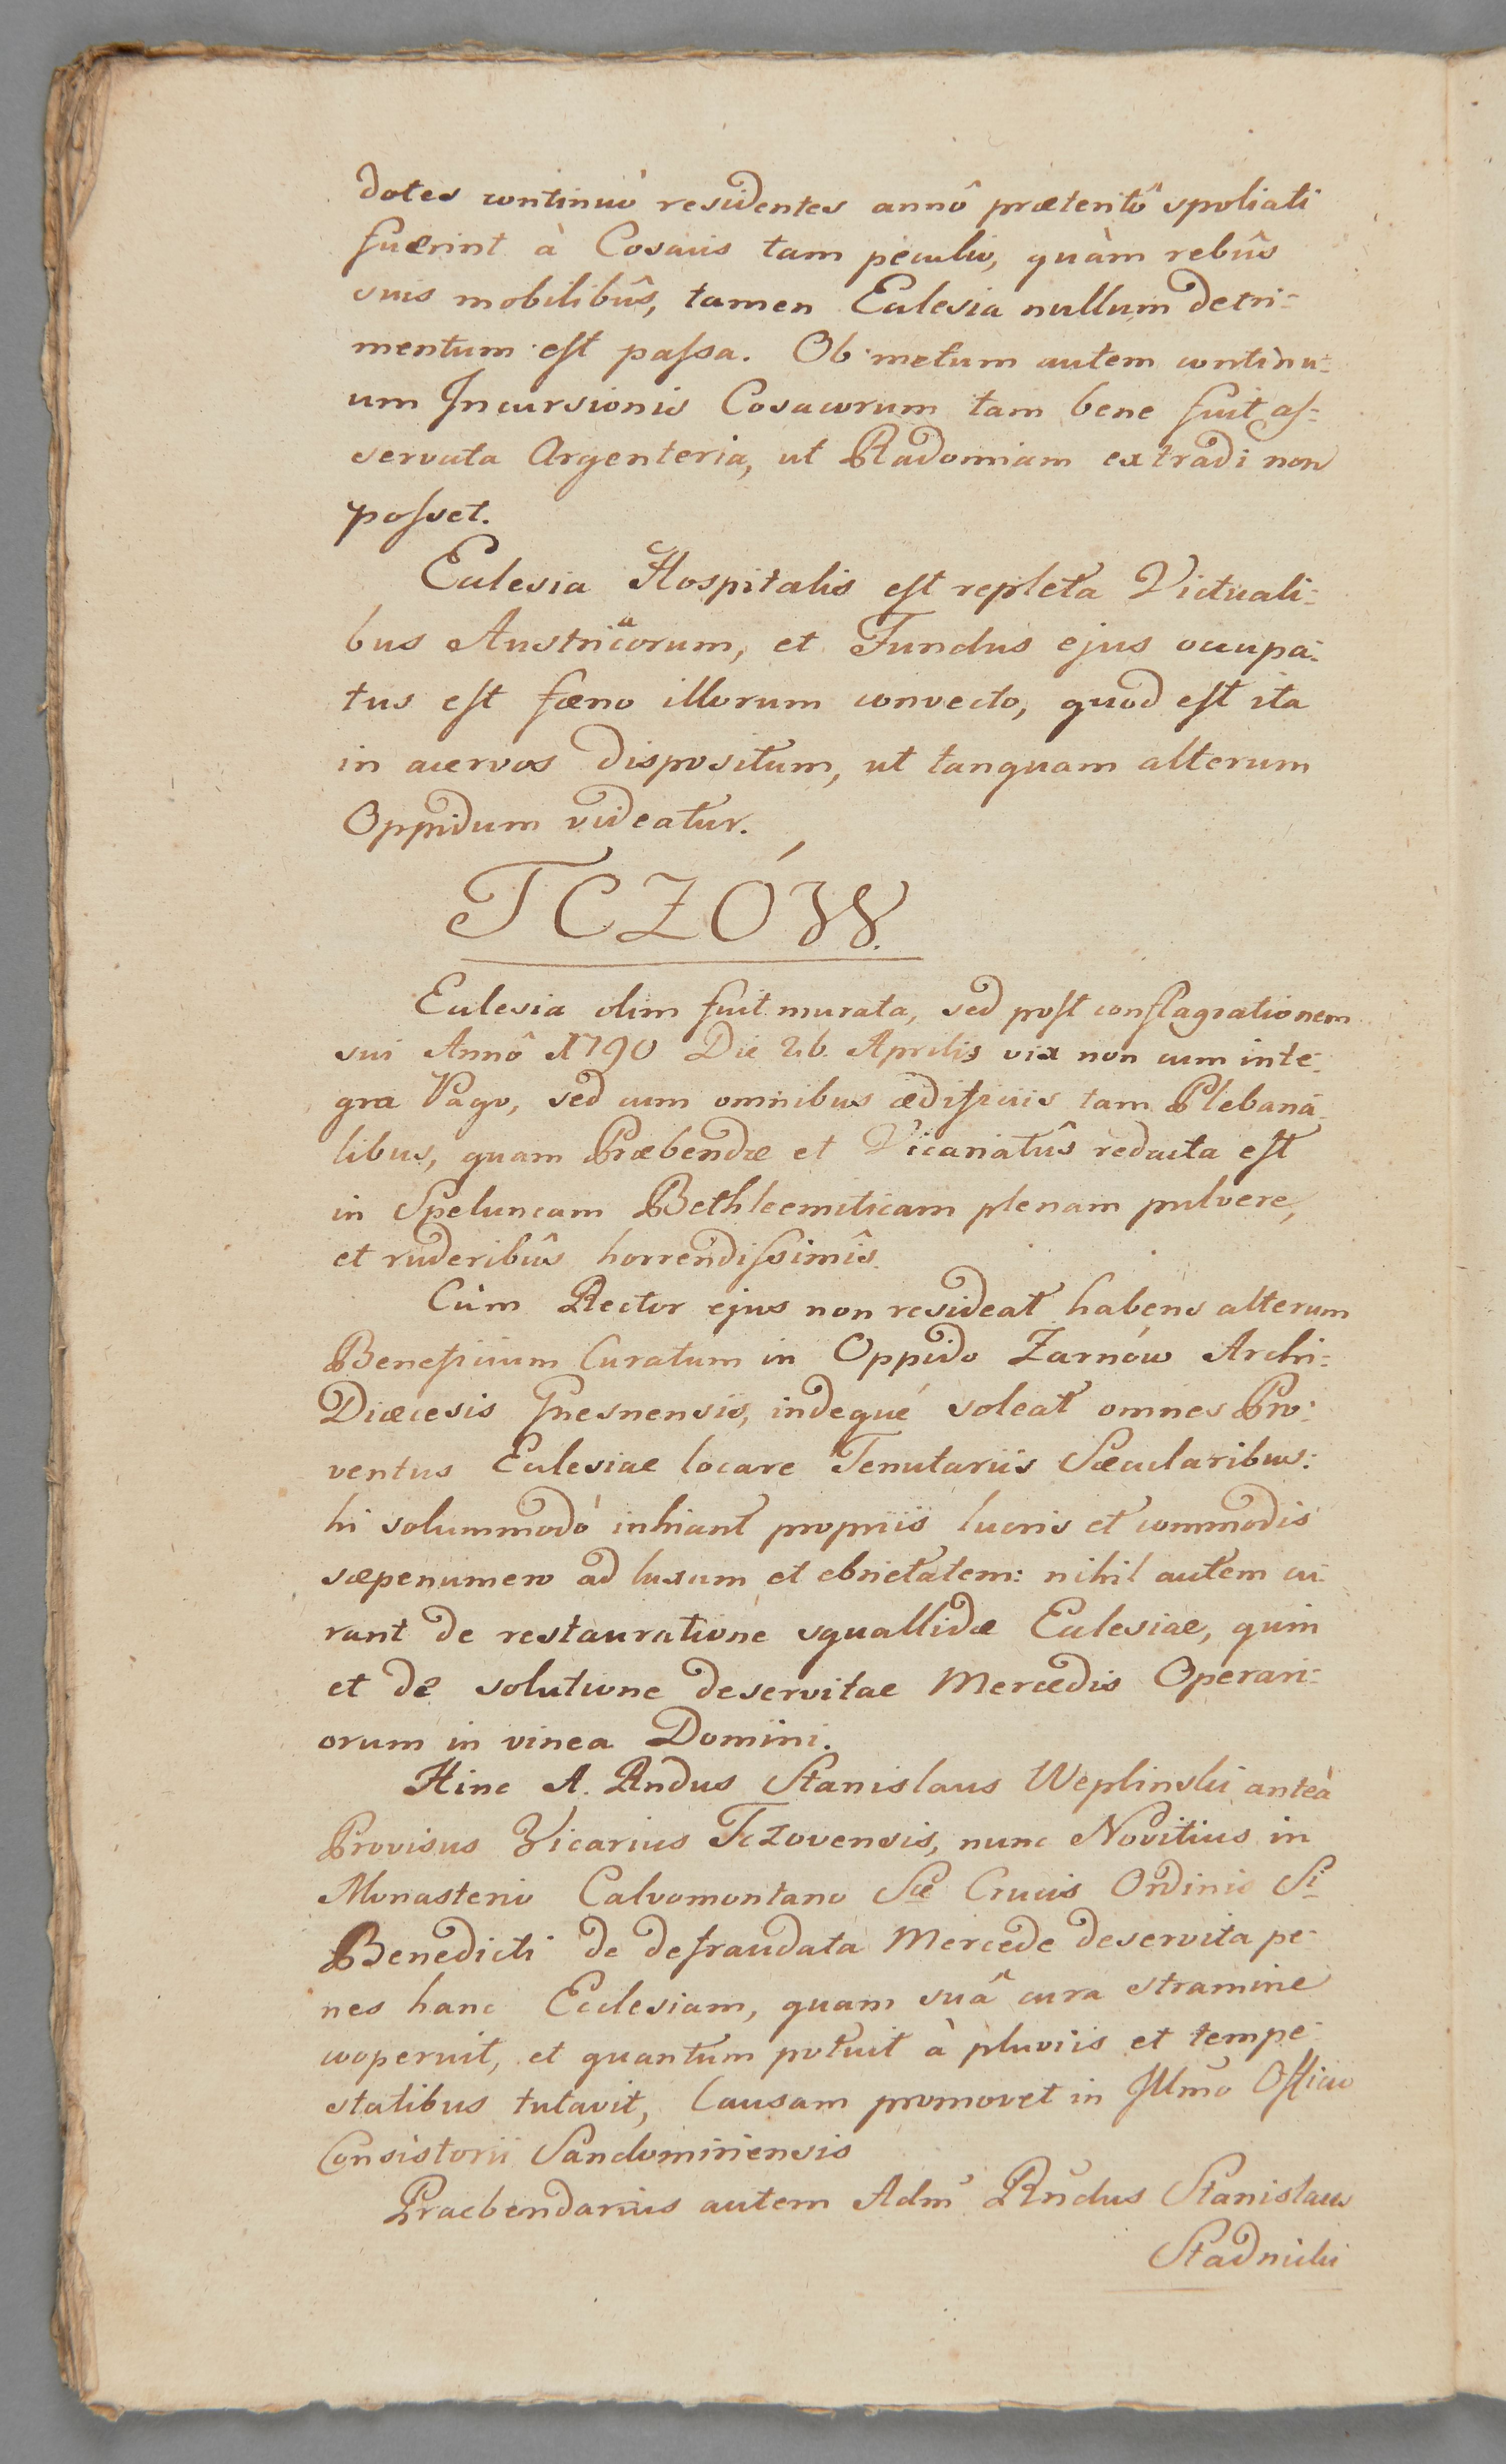 dotes continuò residentes annô præteritô spoliati
fuerint à Cosacis tam peculio, quàm rebûs
suis mobilibûs, tamen Ecclesia nullum detri-
mentum est passa. Ob metum autem continu-
um Incursionis Cosacorum tam bene fuit as-
servata Argenteria, ut Radomiam extradi non
posset.
Ecclesia Hospitalis est repleta Victuali-
bus Austriacorum, et Fundus ejus occupa-
tus est fœno illorum convecto, quod est ita
in acervos dispositum, ut tanquam alterum
Oppidum videatur.
TCZÓW.
Ecclesia olim fuit murata, sed post conflagrationem
sui Annô 1790 Die 26. Aprilis vix non cum inte-
gra Pago, sed cum omnibus ædificiis tam Plebana-
libus, quam Præbendæ et Vicariatûs redacta est
in Speluncam Bethleemiticam plenam pulvere,
et ruderibûs horrendissimîs.
Cùm Rector ejus non resideat habens alterum
Beneficium Curatum in Oppido Żarnów Archi-
Diœcesis Gnesnensis, indequé soleat omnes Pro-
ventus Ecclesiae locare Tenutariis Sæcularibus:
hi solummodò inhiant propriis lucris et commodis
sæpenumero ad luxum et ebrietatem: nihil autem cu-
rant de restauratione squallidæ Ecclesiae, quin
et de solutione deservitae Mercedis Operari-
orum in vinea Domini.
Hinc A. Rndus Stanislaus Weplinski anteà
Provisus Vicarius Tczoviensis, nunc Novitius in
Monasterio Calvomontano Sæ Crucis Ordinis Si
Benedicti de defraudata Mercede deservita pe-
nes hanc Ecclesiam, quam suâ cura stramine
cooperuit, et quantum potuit à pluviis et tempe-
statibus tutavit, Causam promovet in Illmo Officio
Consistorii Sandomiriensis
Praebendarius autem Adm Rndus Stanislaus
Stadnicki